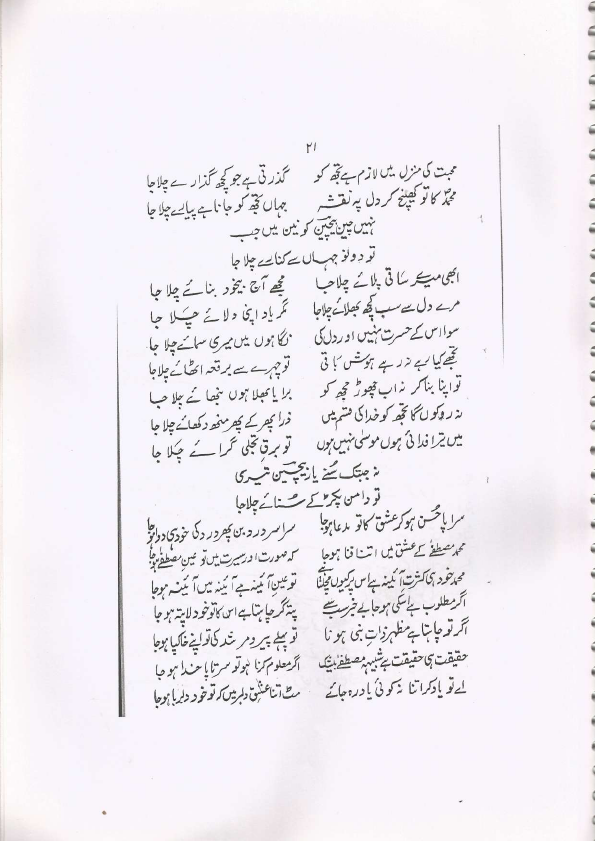 ۲۱
محبت کی منزل میں لازم ہے تجھ کو گذرتی ہے جو کچھ گذارے چلا جا
محمدؐ کا تو کھینچ کر دل پہ نقشہ جہاں تجھ کو جانا ہے پیارے چلا جا
نہیں چین بیچین کونین میں جب
تو دونو جہاں سے کنارے چلا جا
ابھی میرے ساقی پلائے چلا جا مجھے آج بیخود بنائے چلا جا
مرے دل سے سب کچھ بھلائے چلا جا مگر یاد اپنی دلائے چلا جا
سوا اس کے حسرت نہیں اور دل کی نگاہوں میں میری سمائے چلا جا
تجھے کیا رہے نہ رہے ہوش باقی تو چہرے سے برقعہ اٹھائے چلا جا
تو اپنا بنا کر نہ اب چھوڑ مجھ کو برا یا بھلا ہوں نبھائے چلا جا
نہ روکوں گا تجھ کو خدا کی قسم میں ذرا پھر کے پھر منھ دکھائے چلا جا
میں ترا فدائی ہوں موسیٰ نہیں ہوں تو برق تجلی گرائے چلا جا
نہ جبتک سنے یار بیچین تیری
تو دامن پکڑ کے سنائے چلا جا
سراپا حسن ہو کر عشق کا تو مدعا ہو جا سراسر درد بن پھر درد کی خود ہی دوا ہو جا
محمد مصطفےٰ کے عشق میں اتنا فنا ہو جا کہ صورت اور سیرت میں تو عین مصطفےٰ ہو جا
محمد خود ہی کثرت آئینہ ہے اس پر کیوں مچلتا ہے تو عین آئینہ ہے آئینہ میں آئینہ ہو جا
اگر مطلوب ہے اسکی ہو جا بے خبر سب سے پتہ گر چاہتا ہے اس کا تو خود لاپتہ ہو جا
اگر تو چاہتا ہے مظہر ذات نبی ہونا تو پہلے پیر و مرشد کی تو اپنے خاکپا ہو جا
حقیقت ہی حقیقت ہے شبیہہ مصطفےٰ بیشک اگر معلوم کرنا ہو تو سرتاپا خدا ہو جا
اے تو یاد کر اتنا نہ کوئی یاد رہ جائے مٹ اتنا عشق دلبر میں کہ تو خود دلربا ہو جا